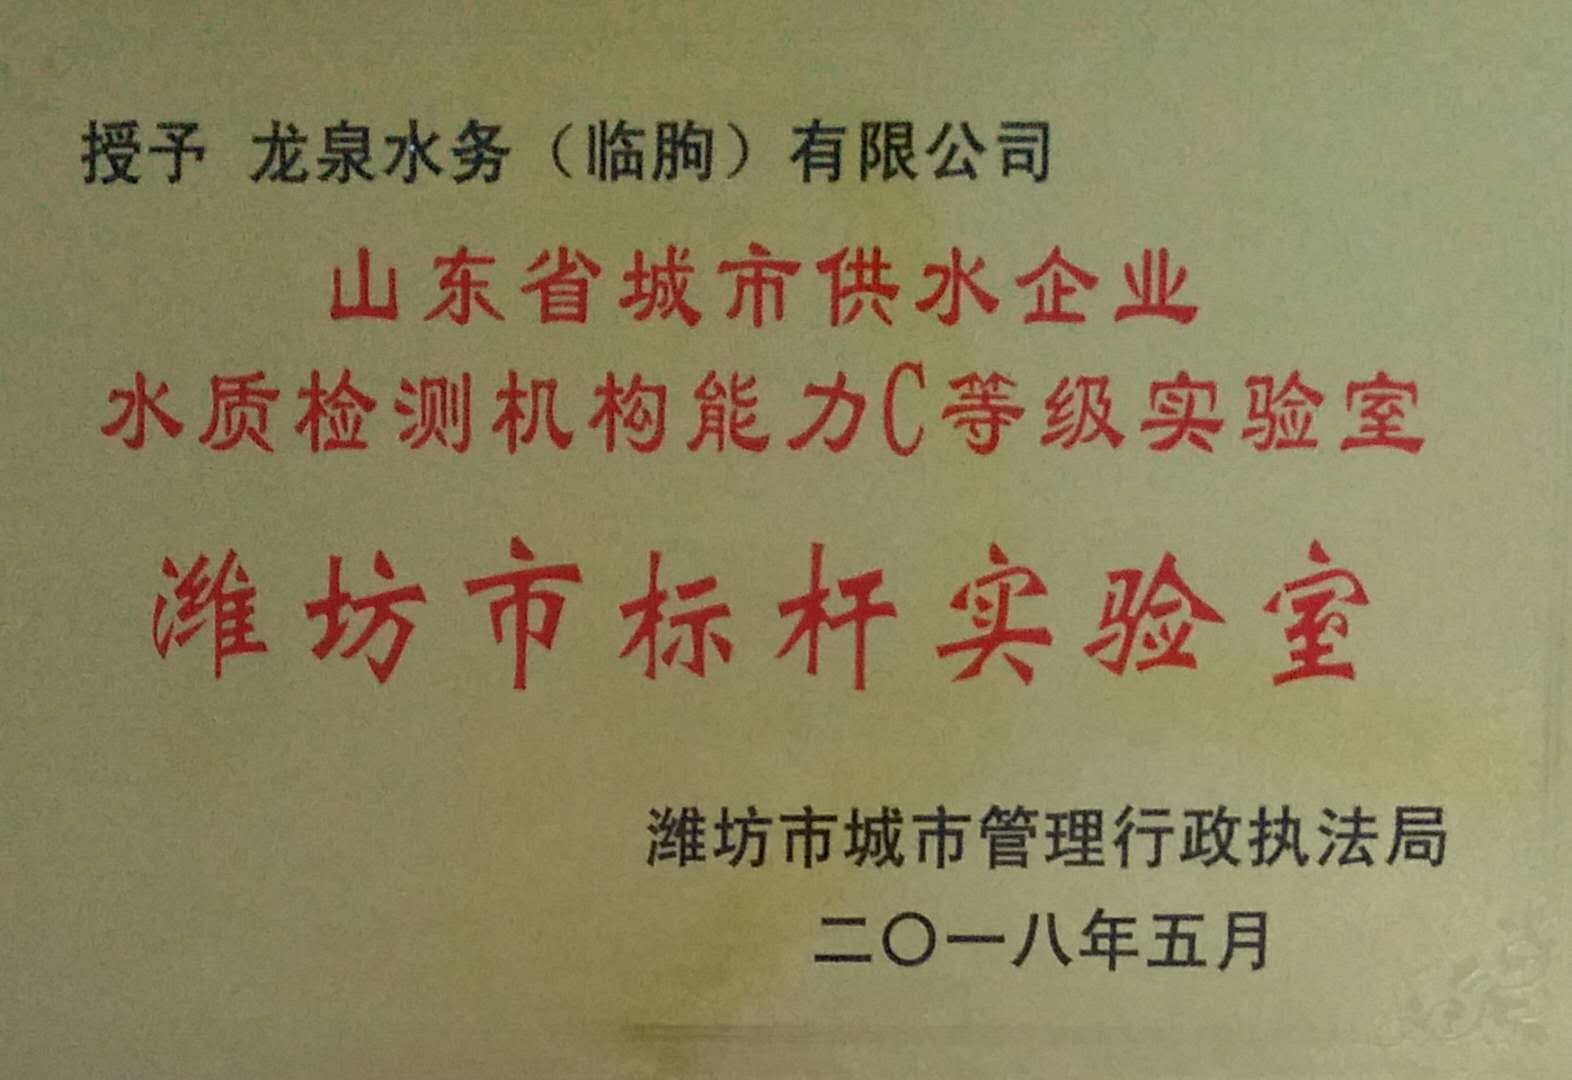 授予 龙泉水务（临朐）有限公司
山东省城市供水企业
水质检测机构能力C等级实验室
潍坊市标杆实验室
潍坊市城市管理行政执法局
二〇一八年五月